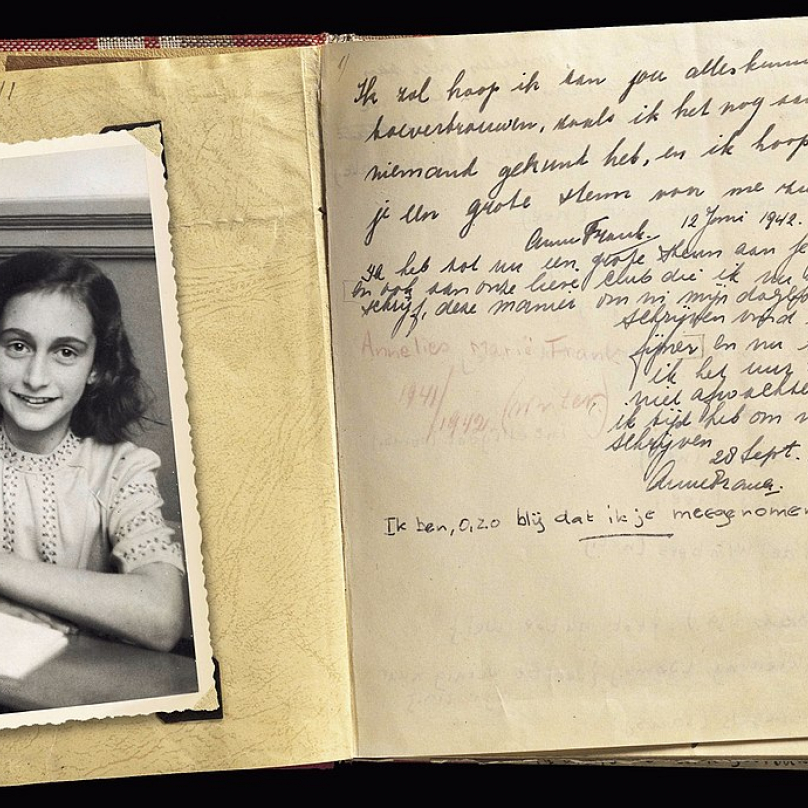 Ik zal hoop ik aan jou alles kunnen
toevertrouwen, zoals ik het nog aan
niemand gekund heb, en ik hoop
je een grote steun van me zu
Anne Frank. 12 Juni 1942.
Ik heb tot nu een grote steun aan je
en ook aan onze lieve club die ik nu
schrijf, deze manier om in mijn dagb
schrijven vind
fijner en nu
ik het uur
niet afwachte
ik tijd heb om
schrijven
28 Sept.
Anne Frank.
Annelies Marie Frank
1941/
1942. (winter)
Ik ben, o, zo blij dat ik je meegenomen